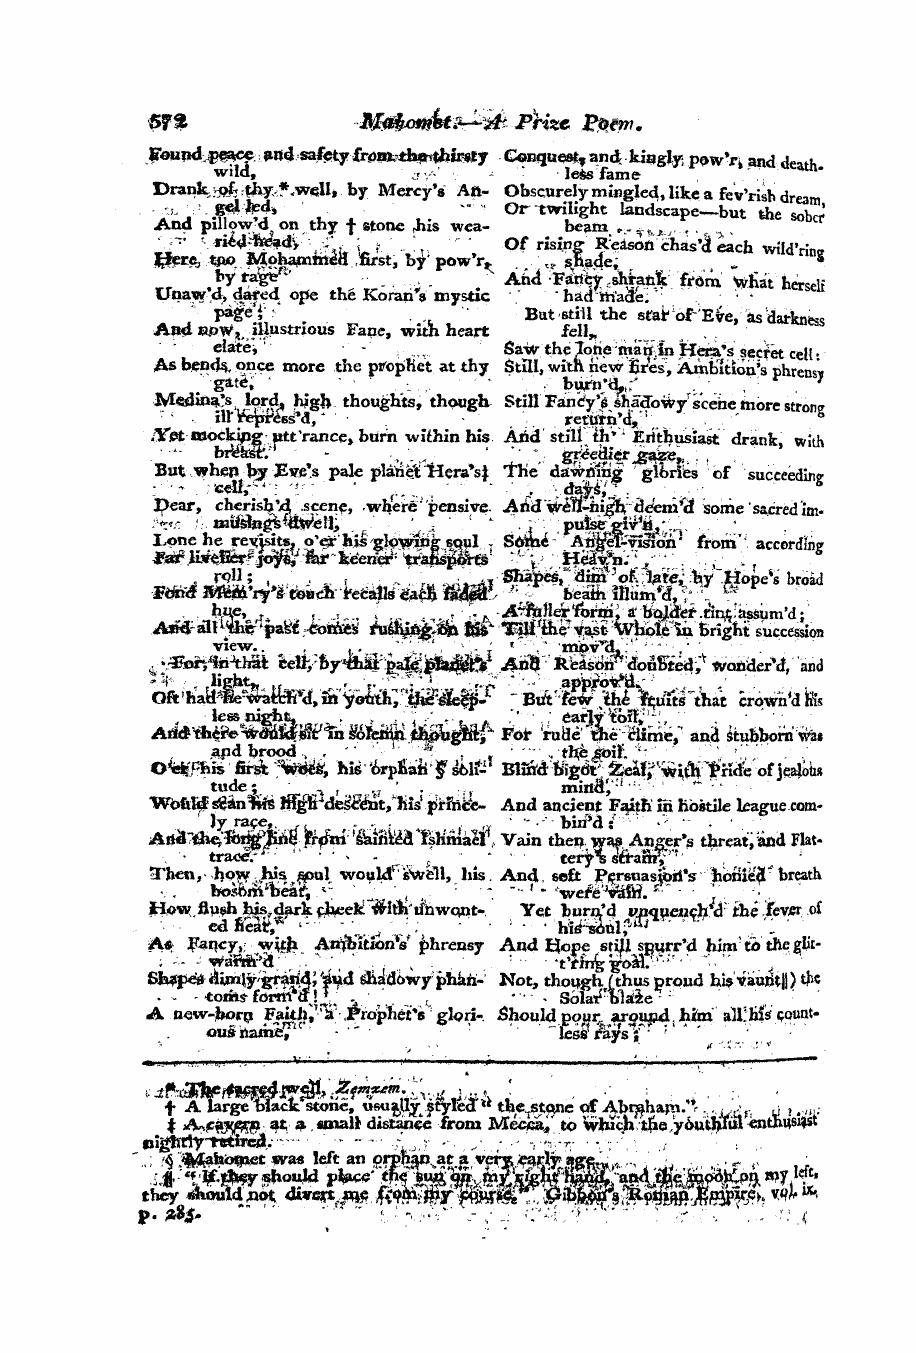 572 Mahomet.—A Prize Poem.
Found peace and safety from the thirsty
wild,
Drank of thy * well, by Mercy's An-
gel led,
And pillow'd on thy † stone his wea-
ried head;
Here, too Mohammed first, by pow'r,
by rage
Unaw'd, dared ope the Koran's mystic
page;
And now, illustrious Fane, with heart
elate,
As bends once more the prophet at thy
gate,
Medina's lord, high thoughts, though
ill repress'd,
Yet mocking utt'rance, burn within his
breast.
But when by Eve's pale planet Hera's‡
cell,
Dear, cherish'd scene, where pensive
musings dwell,
Lone he revisits, o'er his glowing soul
Far livelier joys, far keener transports
roll;
Fond Mem'ry's touch recalls each faded
hue,
And all the past comes rushing on his
view.
For, in that cell, by that pale planet's
light,
Oft had he watch'd, in youth, the sleep-
less night,
And there would sit in solemn thought,
and brood
O'er his first woes, his orphan § soli-
tude;
Would scan his high descent, his prince-
ly race,
And the long line from sainted Ishmael
trace.
Then, how his soul would swell, his
bosom beat,
How flush his dark cheek with unwont-
ed heat,
As Fancy, with Ambition's phrensy
warm'd
Shapes dimly grand, and shadowy phan-
toms form'd!
A new-born Faith, a Prophet's glori-
ous name,
Conquest, and kingly pow'r, and death-
less fame
Obscurely mingled, like a fev'rish dream,
Or twilight landscape—but the sober
beam
Of rising Reason chas'd each wild'ring
shade,
And Fancy shrank from what herself
had made.
But still the star of Eve, as darkness
fell,
Saw the lone man in Hera's secret cell:
Still, with new fires, Ambition's phrensy
burn'd,
Still Fancy's shadowy scene more strong
return'd,
And still th' Enthusiast drank, with
greedier gaze,
The dawning glories of succeeding
days,
And well-nigh deem'd some sacred im-
pulse giv'n,
Some Angel-vision from according
Heav'n.
Shapes, dim of late, by Hope's broad
beam illum'd,
A fuller form, a bolder tint assum'd;
Till the vast Whole in bright succession
mov'd,
And Reason doubted, wonder'd, and
approv'd.
But few the fruits that crown'd his
early toil,
For rude the clime, and stubborn was
the soil.
Blind bigot Zeal, with Pride of jealous
mind,
And ancient Faith in hostile league com-
bin'd:
Vain then was Anger's threat, and Flat-
tery's strain,
And soft Persuasion's honied breath
were vain.
Yet burn'd unquench'd the fever of
his soul,
And Hope still spurr'd him to the glit-
t'ring goal.
Not, though (thus proud his vaunt‖) the
Solar blaze
Should pour around him all his count-
less rays;
* The sacred well, Zemzem.
† A large black stone, usually styled "the stone of Abraham."
‡ A cavern at a small distance from Mecca, to which the youthful enthusiast
nightly retired.
§ Mahomet was left an orphan at a very early age.
‖ "If they should place the sun on my right hand, and the moon on my left,
they should not divert me from my course." Gibbon's Roman Empire, vol. ix.
p. 285.